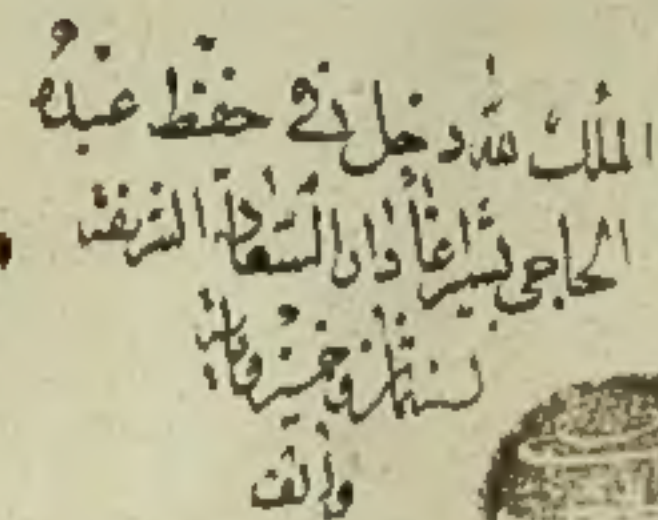 الملك لله دخل في حفظ عبده
الحاجي بشير اغا دار السعادة الشريفة
لسنة ثمان وخمسين ومايه
والف